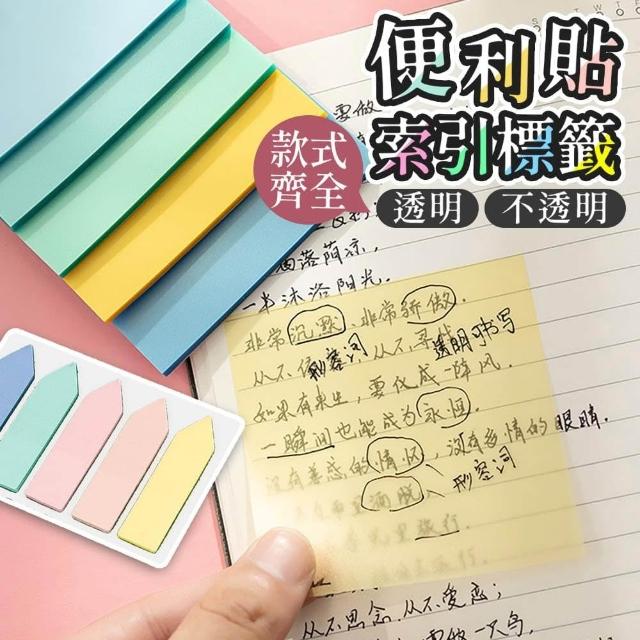 便利貼
索引標籤
款式
齊全
透明
不透明
一半沐浴阳光。
非常沉默、非常骄傲。
形容词
透明书写
从不依 从不寻找
如果有来生,要化成一阵风。
一瞬间也能成为永恒。
没有善感的情怀,没有多情的眼睛。
形容词
洒脱
旅行。
从不思念、从不爱恋;